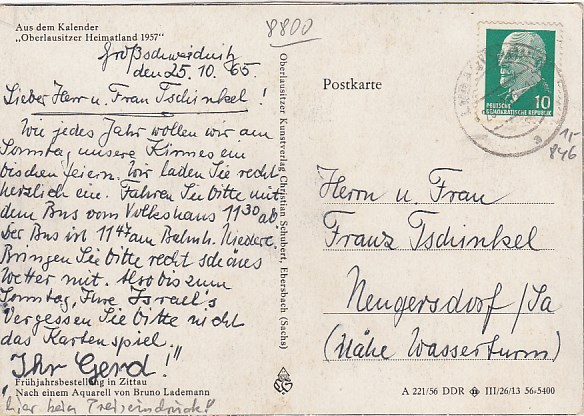 Aus dem Kalender
„Oberlausitzer Heimatland 1957"
8800
Großschweidnitz
den 25. 10. 65.
Lieber Herr u. Frau Tschinkel !
Wie jedes Jahr wollen wir am
Sonntag, unsere Kirmes ein
bischen feiern. Wir laden Sie recht
herzlich ein. Fahren Sie bitte mit
dem Bus vom Volkshaus 11³⁰ ab.
Der Bus ist 11⁴⁷ am Bahnh. Niederc.
Bringen Sie bitte recht schönes
Wetter mit. Also bis zum
Sonntag, Ihre Israel's
Vergessen Sie bitte nicht
das Kartenspiel.
Ihr Gerd!"
Frühjahrsbestellung in Zittau
Nach einem Aquarell von Bruno Lademann
hier beim
Oberlausitzer Kunstverlag Christian Schubert, Ebersbach (Sachs)
Postkarte
DEUTSCHE
DEMOKRATISCHE REPUBLIK
10
a
1,-
846
Herrn u. Frau
Franz Tschinkel
Neugersdorf/Sa
(Nähe Wasserturm)
A 221/56 DDR III/26/13 56-5400